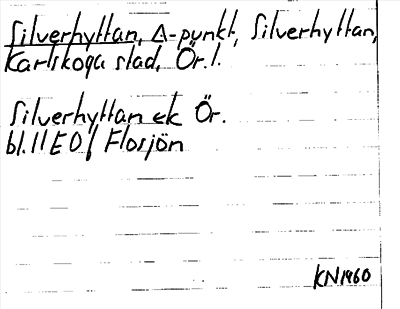 Silverhyttan, Δ-punkt, Silverhyttan,
Karlskoga stad, Ör. l.
Silverhyttan ek Ör.
bl. 11 E 0 f Flosjön
KN1960